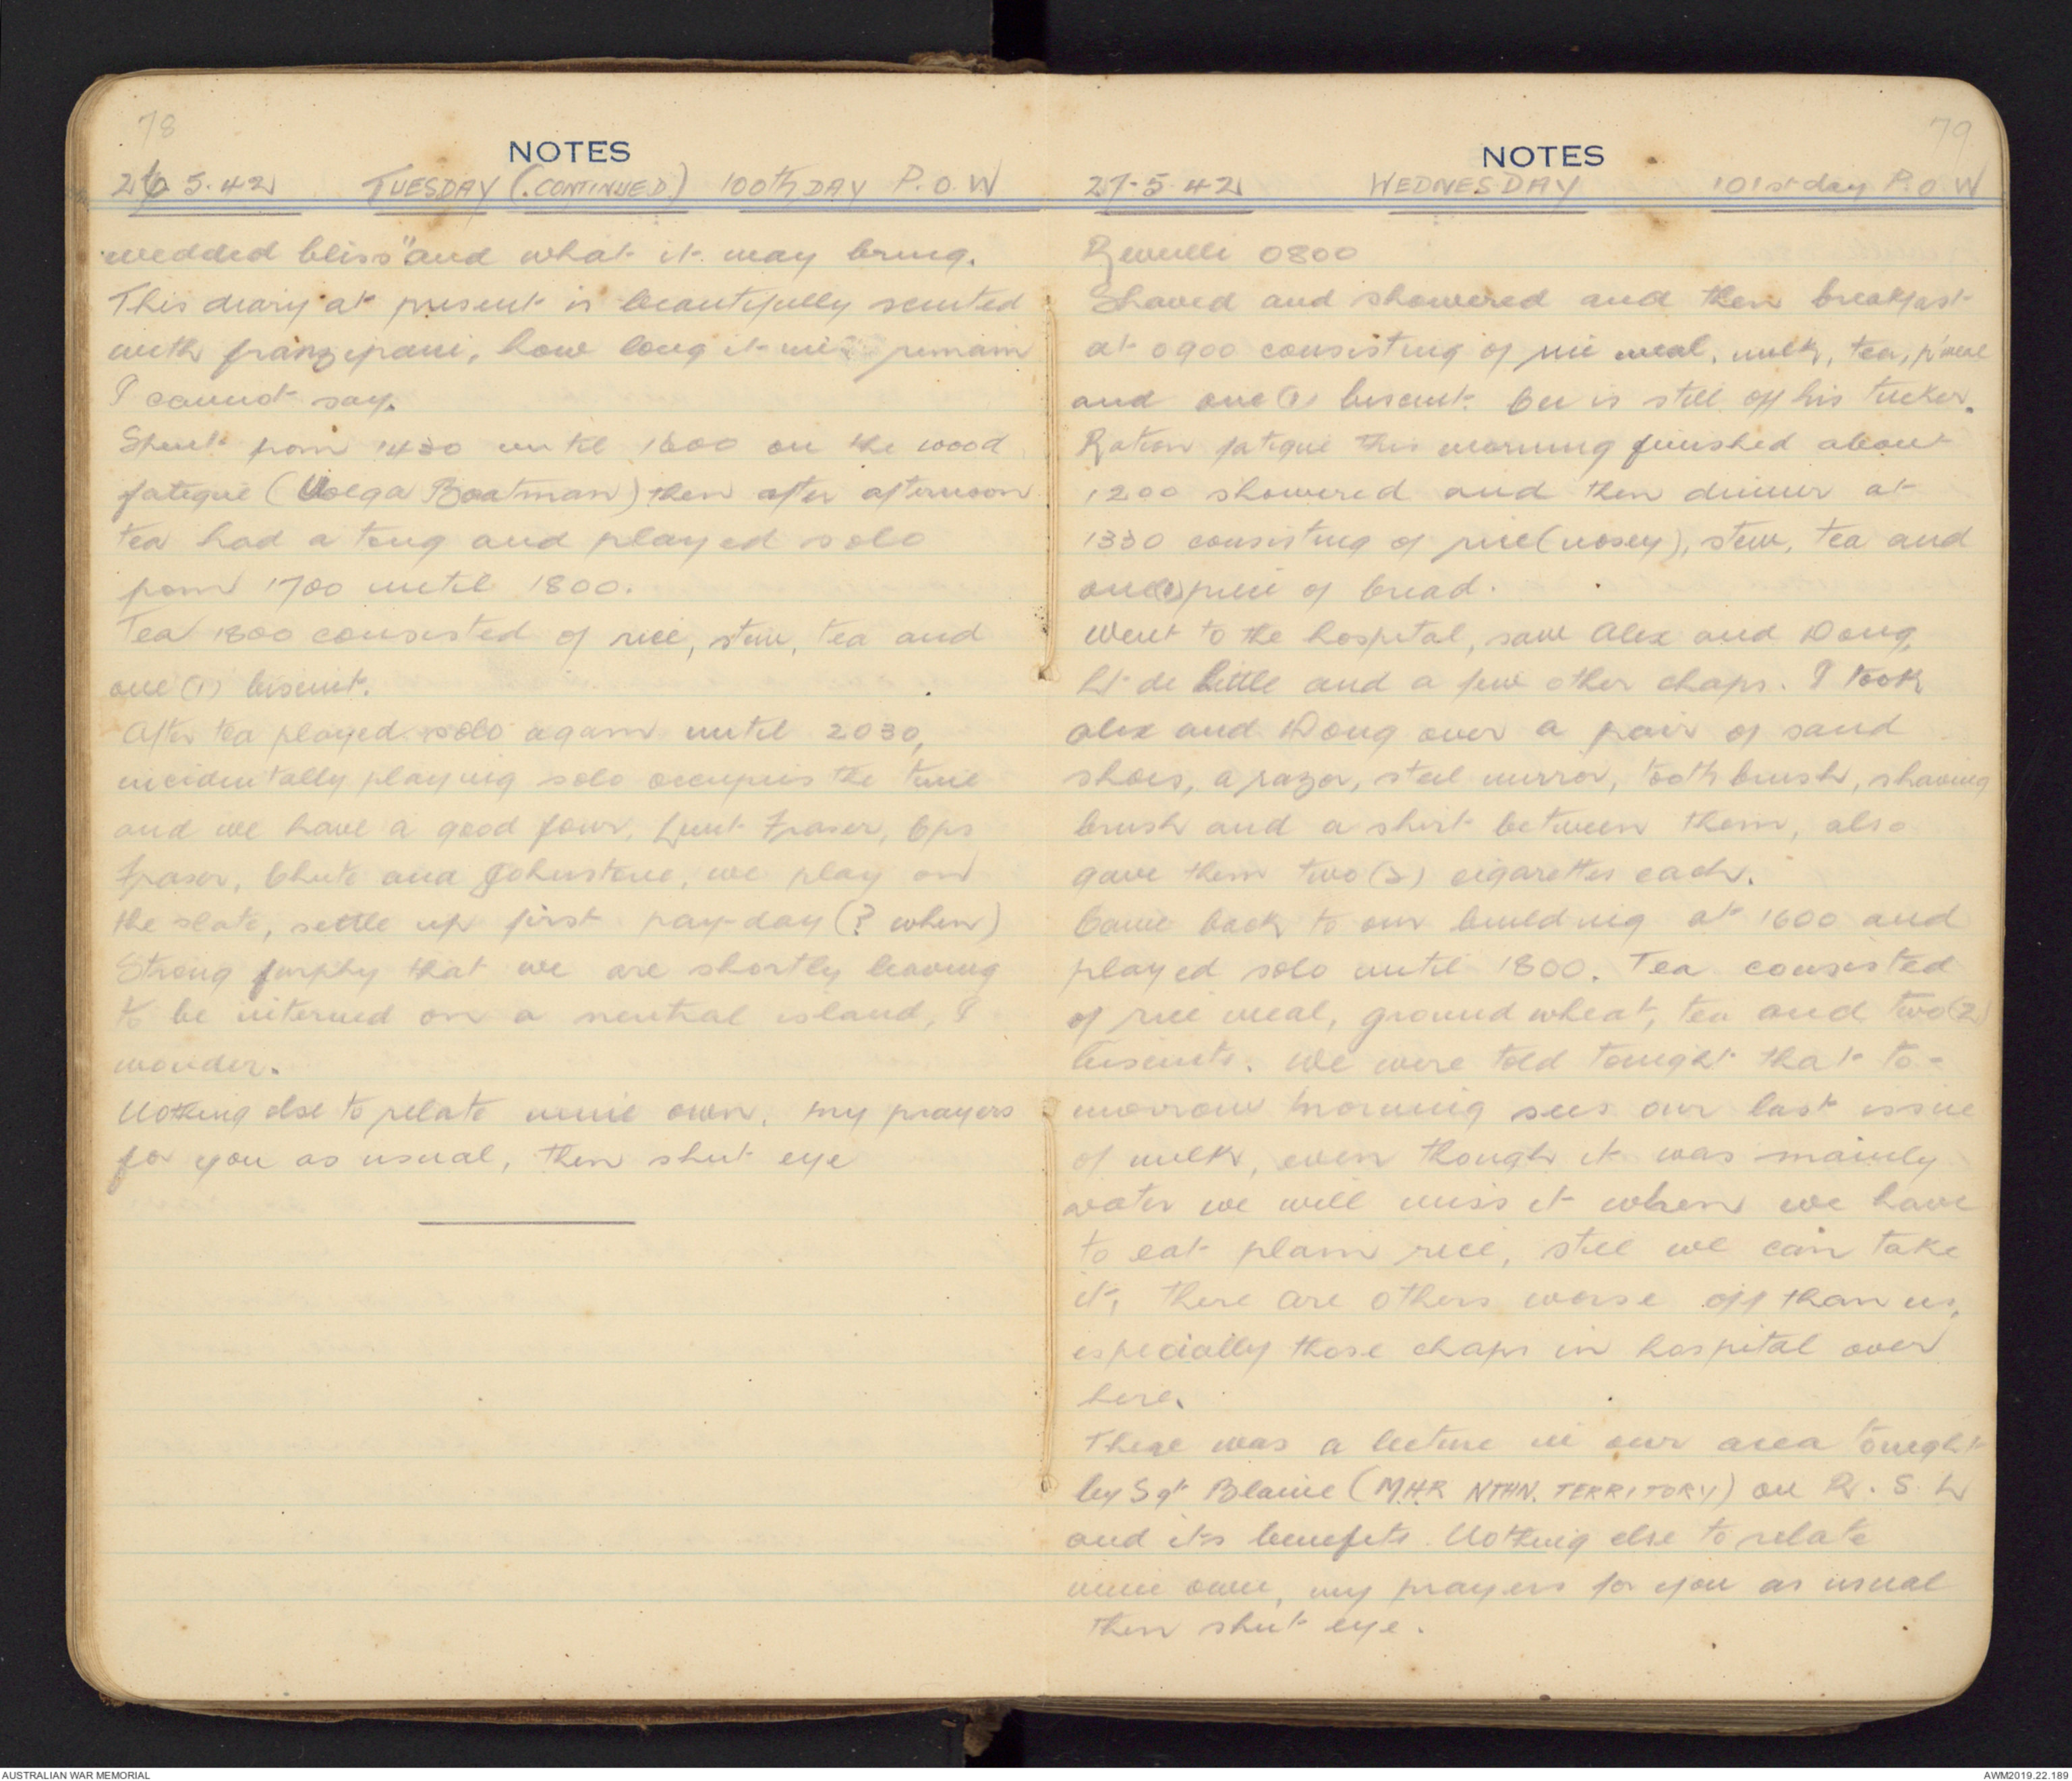 78
NOTES
26.5.42 TUESDAY (CONTINUED) 100th DAY P.O.W
wedded bliss" and what it may bring.
This diary at present is beautifully scented
with franzipani, how long it will remain
I cannot say.
Spent from 1430 until 1600 on the wood
fatigue (Volga Boatman) then after afternoon
tea had a tong and played solo
from 1700 until 1800.
Tea 1800 consisted of rice, stew, tea and
one (1) biscuit.
After tea played solo again until 2030,
incidentally playing solo occupies the time
and we have a good four, Lieut Fraser, Cpls
Fraser, Chute and Johnstone, we play on
the slate, settle up first pay-day (? when)
Strong furphy that we are shortly leaving
to be interned on a neutral island, I
wonder.
Nothing else to relate mine own, my prayers
for you as usual, then shut eye
79
NOTES
27.5.42 WEDNESDAY 101st day P.O.W
Reveille 0800
Shaved and showered and then breakfast
at 0900 consisting of rice meal, milk, tea,
and one (1) biscuit. Cec is still off his tucker.
Ration fatigue this morning finished about
1200 showered and then dinner at
1330 consisting of rice (nosey), stew, tea and
one (1) piece of bread.
Went to the hospital, saw Alex and Doug,
Lt de Little and a few other chaps. I took
Alex and Doug over a pair of sand
shoes, a razor, steel mirror, tooth brush, shaving
brush and a shirt between them, also
gave them two (2) cigarettes each.
Came back to our building at 1600 and
played solo until 1800. Tea consisted
of rice meal, ground wheat, tea and two (2)
biscuits. We were told tonight that to-
morrow morning sees our last issue
of milk, even though it was mainly
water we will miss it when we have
to eat plain rice, still we can take
it, there are others worse off than us,
especially those chaps in hospital over
here.
There was a lecture in our area tonight
by Sgt Blaine (M.H.R NTHN. TERRITORY) on R.S.L
and its benefits. Nothing else to relate
mine own, my prayers for you as usual
then shut eye.
AUSTRALIAN WAR MEMORIAL
AWM2019.22.189